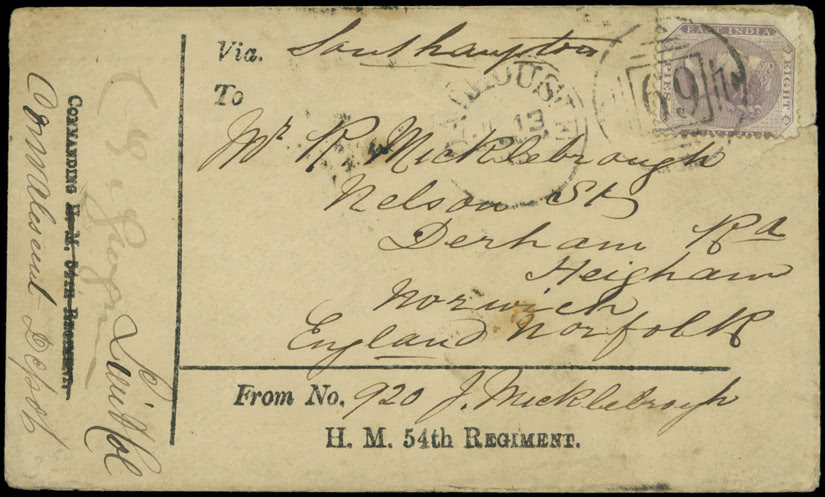 Via. Southampton
To
Mr R Micklebrough
Nelson St
Derham Rd
Heigham
Norwich
England Norfolk
From No. 920 J. Micklebrough
H. M. 54th REGIMENT.
COMMANDING H. M. 54TH REGIMENT.
Convalescent Depot
Lt Col
DALHOUSIE
13
69
EAST INDIA
EIGHT
PIES